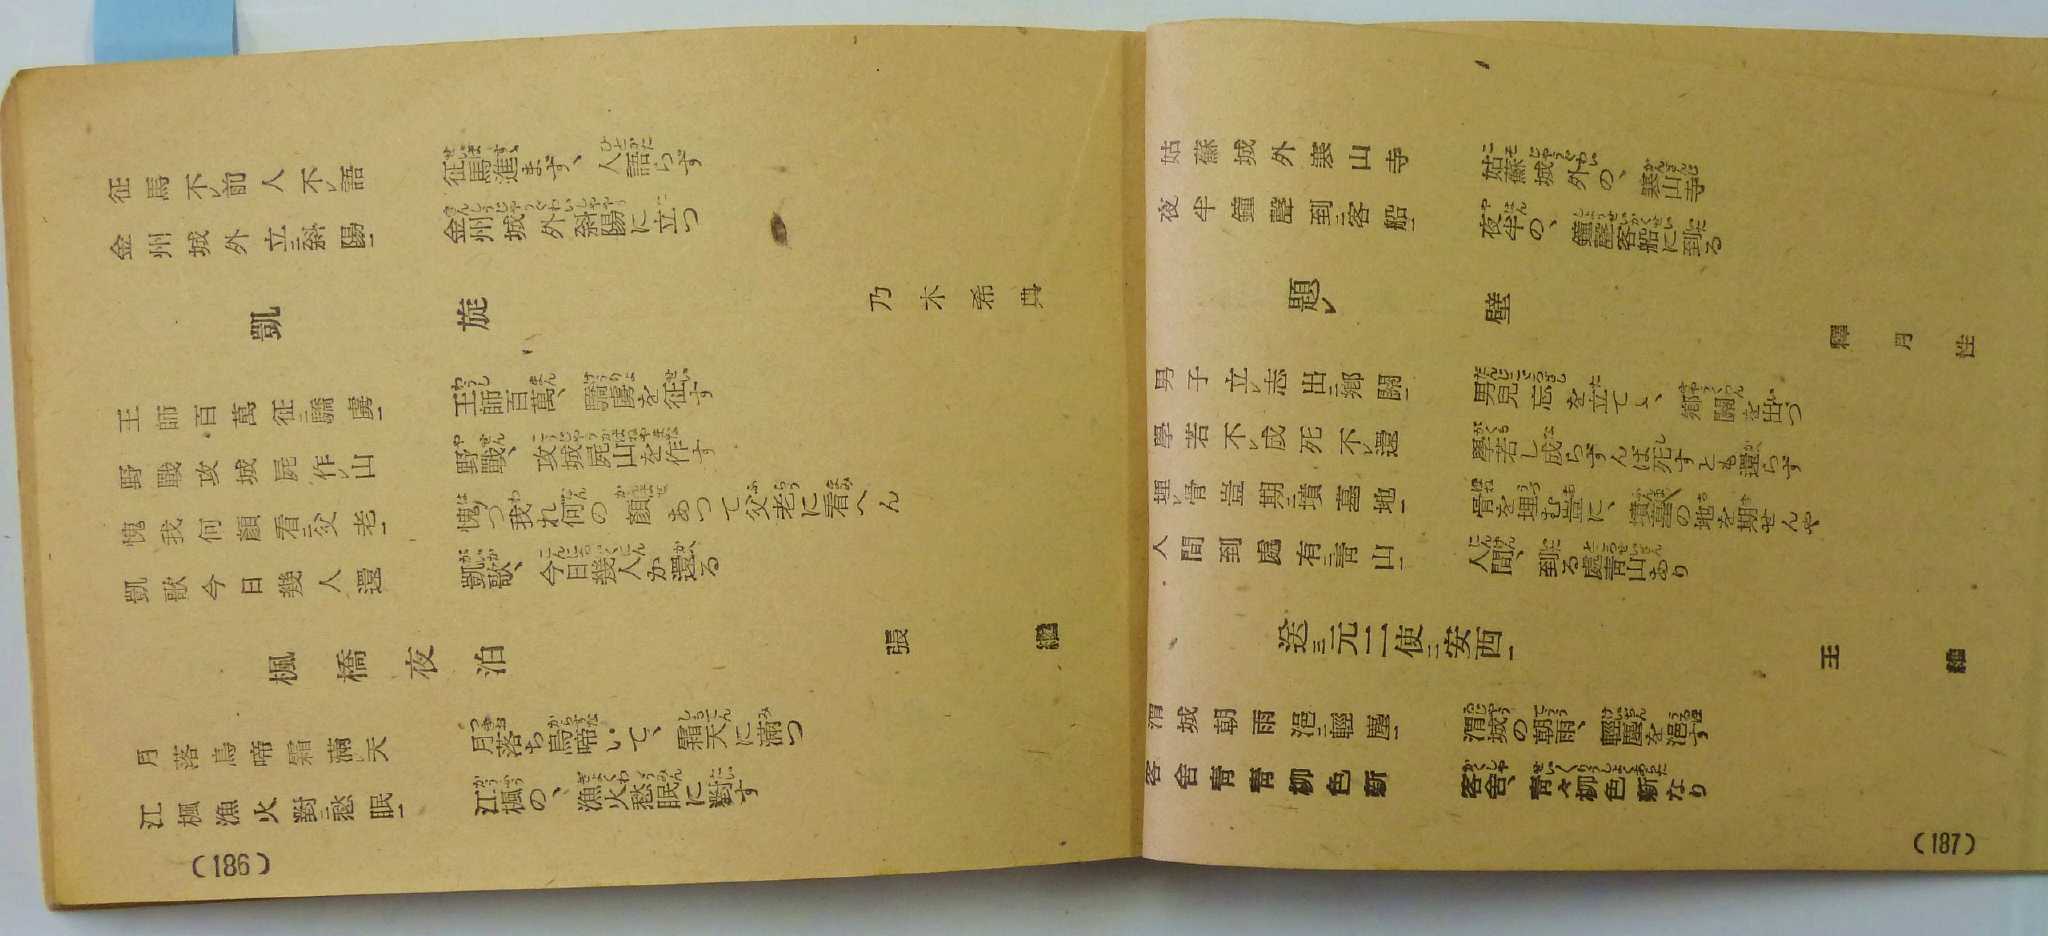 征馬不㆑前人不㆑語　征馬進まず、人語らず
金州城外立㆓斜陽㆒　金州城外斜陽に立つ
凱旋
乃木希典
王師百萬征㆓驕虜㆒　王師百萬、驕虜を征す
野戰攻城屍作㆑山　野戰、攻城屍山を作す
愧我何顏看㆓父老㆒　愧づ我れ何の顏あつて父老に看へん
凱歌今日幾人還　凱歌、今日幾人か還る
楓橋夜泊
張繼
月落烏啼霜滿㆑天　月落ち烏啼いて、霜天に滿つ
江楓漁火對㆓愁眠㆒　江楓の、漁火愁眠に對す
(186)
姑蘇城外寒山寺　姑蘇城外の、寒山寺
夜半鐘聲到㆓客船㆒　夜半の、鐘聲客船に到る
題㆑壁
釋月性
男子立㆑志出㆓郷關㆒　男兒志を立てゝ、郷關を出づ
學若不㆑成死不㆑還　學若し成らずんば死すとも還らず
埋㆑骨豈期㆓墳墓地㆒　骨を埋む豈に、墳墓の地を期せんや
人間到處有㆓靑山㆒　人間、到る處靑山あり
送㆔元二使㆓安西㆒
王維
渭城朝雨浥㆓輕塵㆒　渭城の朝雨、輕塵を浥す
客舍靑靑柳色新　客舍、靑々柳色新なり
(187)